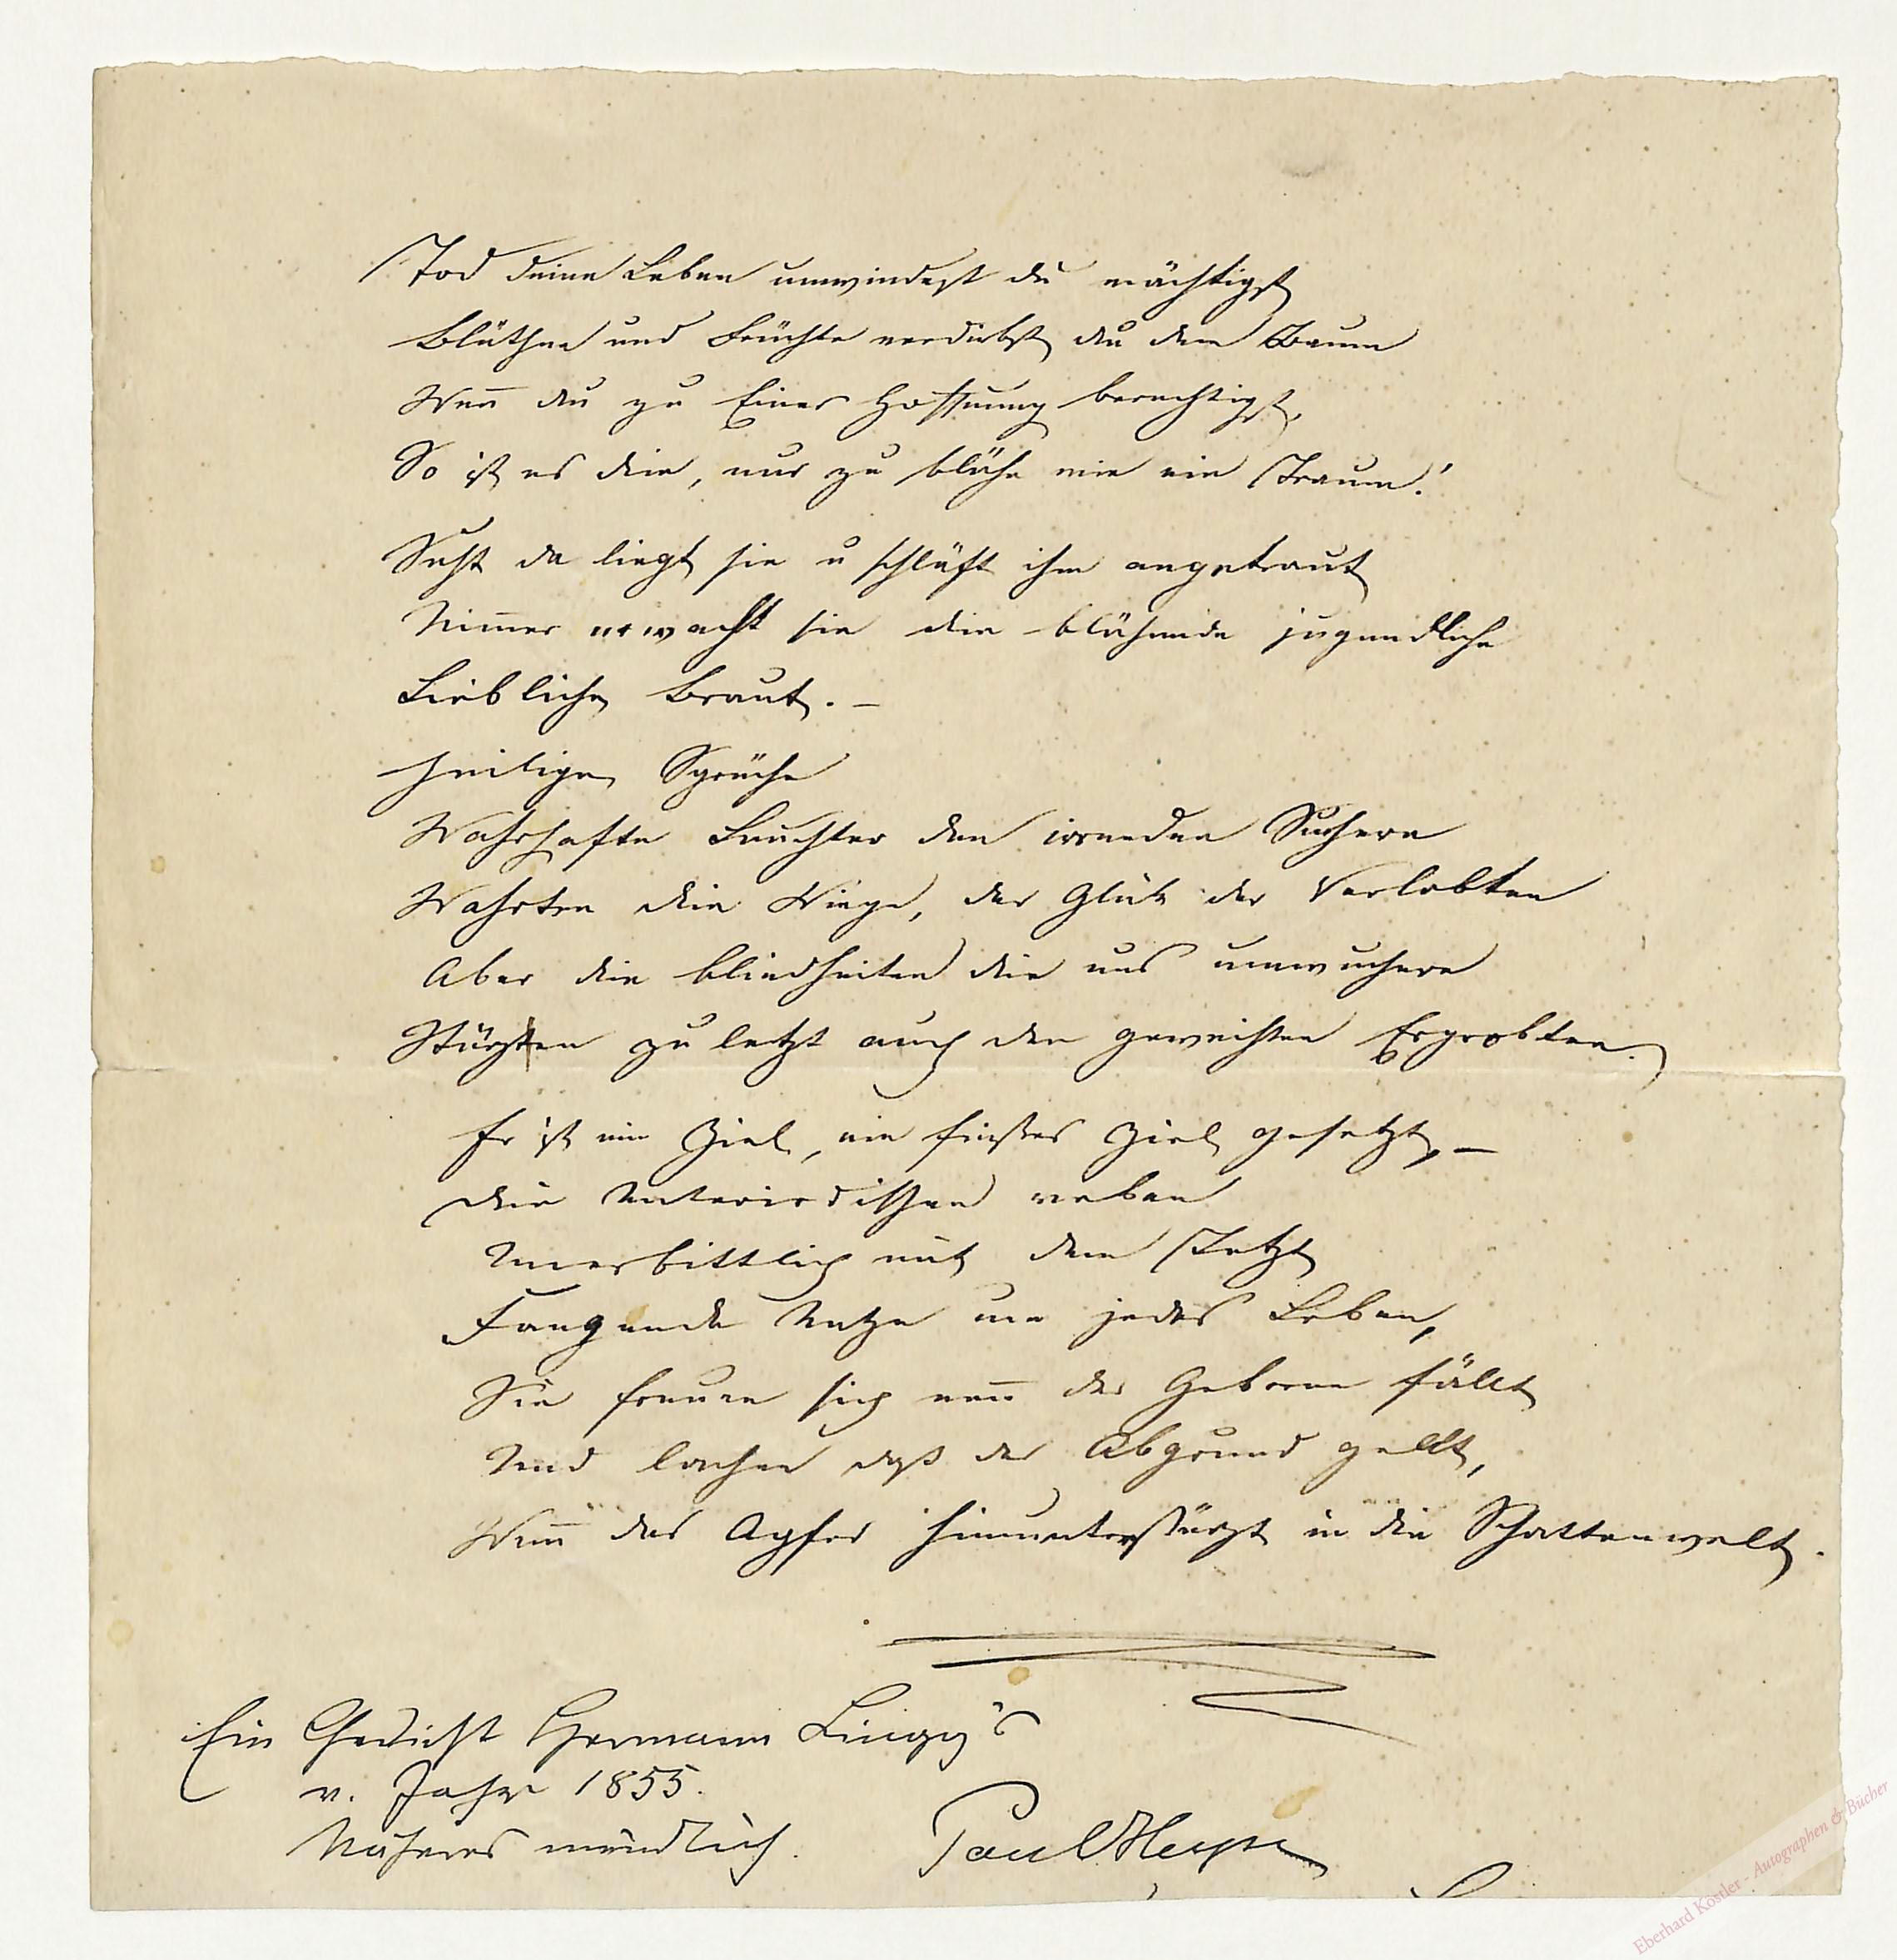 Tod deine Leben umwindest du mächtigst
Blüthen und Früchte verdirbst du dem Baum
Wen̅ du zu Einer Hoffnung berechtigst,
So ist es die, nur zu blühn wie ein Traum!
Seht da liegt sie u schläft ihm angetraut
Nim̅er erwacht sie die blühende jugendliche
Liebliche Braut. –
Heilige Sprüche
Wahrhafte Leuchter den irrenden Suchern
Wahrten die Wiege, das Glück der Verlobten
Aber die blindheiten die uns umwuchern
Stürzten zu letzt auch den geweihten Erprobten.
Es ist ein Ziel, ein finstres Ziel gesetzt, –
Die Unterirdischen weben
Unerbittlich mit dem Jetzt
Fangende Netze um jedes Leben,
Sie freuen sich wen̅ der Geborne fällt
Und lachen daß der Abgrund gellt,
Wen̅ das Opfer hinunterstürzt in die Schattenwelt.
Ein Gedicht Hermann Lingg's
v. Jahr 1855.
Näheres mündlich.
Paul Heyse
Eberhard Köstler - Autographen & Bücher